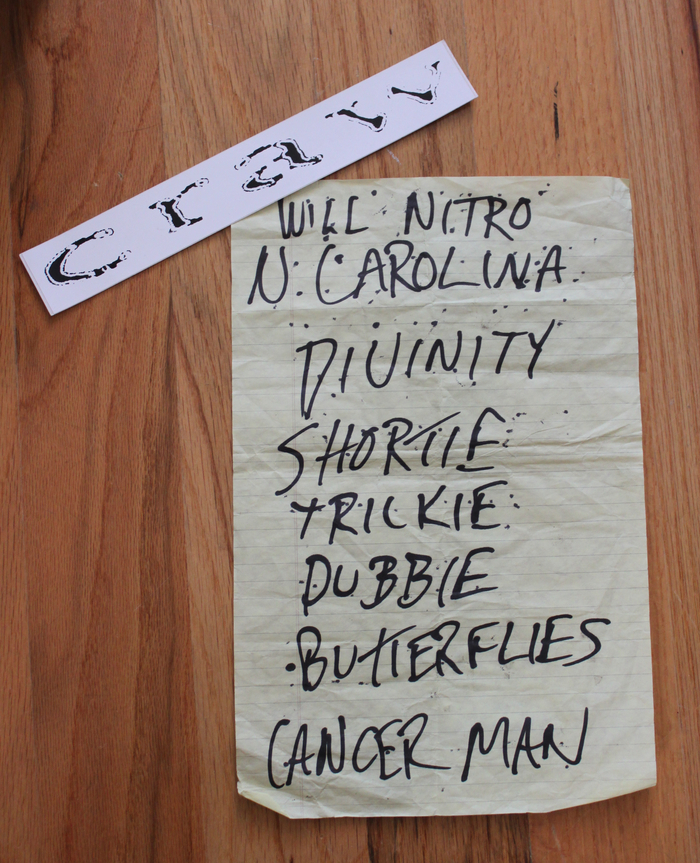 WILL NITRO
N. CAROLINA
DIVINITY
SHORTIE
TRICKIE
DUBBIE
BUTTERFLIES
CANCER MAN